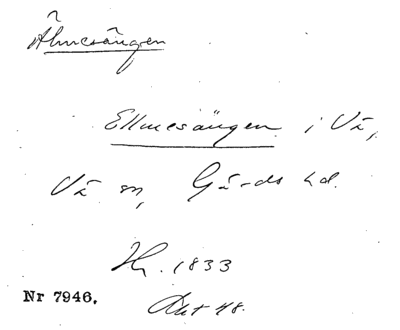 Älmesängen
Ellmesängen i Vä,
Vä sn, Gärds hd.
Hr. 1833
Akt 48.
Nr 7946.